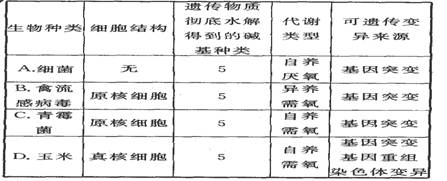 生物种类 细胞结构 遗传物质彻底水解得到的碱基种类 代谢类型 可遗传变异来源
A.细菌 无 5 自养厌氧 基因突变
B.禽流感病毒 原核细胞 5 异养需氧 基因突变
C.青霉菌 原核细胞 5 自养需氧 基因突变
D.玉米 真核细胞 5 自养需氧 基因突变基因重组染色体变异